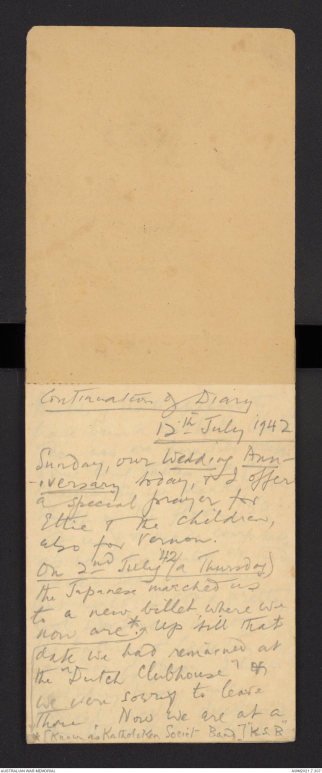 Continuation of Diary
12th July 1942
Sunday, our Wedding Ann-
-iversary today, & I offer
a special prayer for
Ettie & the children,
also for Vernon.
On 2nd July '42 (a Thursday)
the Japanese marched us
to a new billet where we
now are*. Up 'till that
date we had remained at
the "Dutch Clubhouse" &
we were sorry to leave
there. Now we are at a
* [Known as Katholeken Societ Band."] "K.S.B"
AUSTRALIAN WAR MEMORIAL